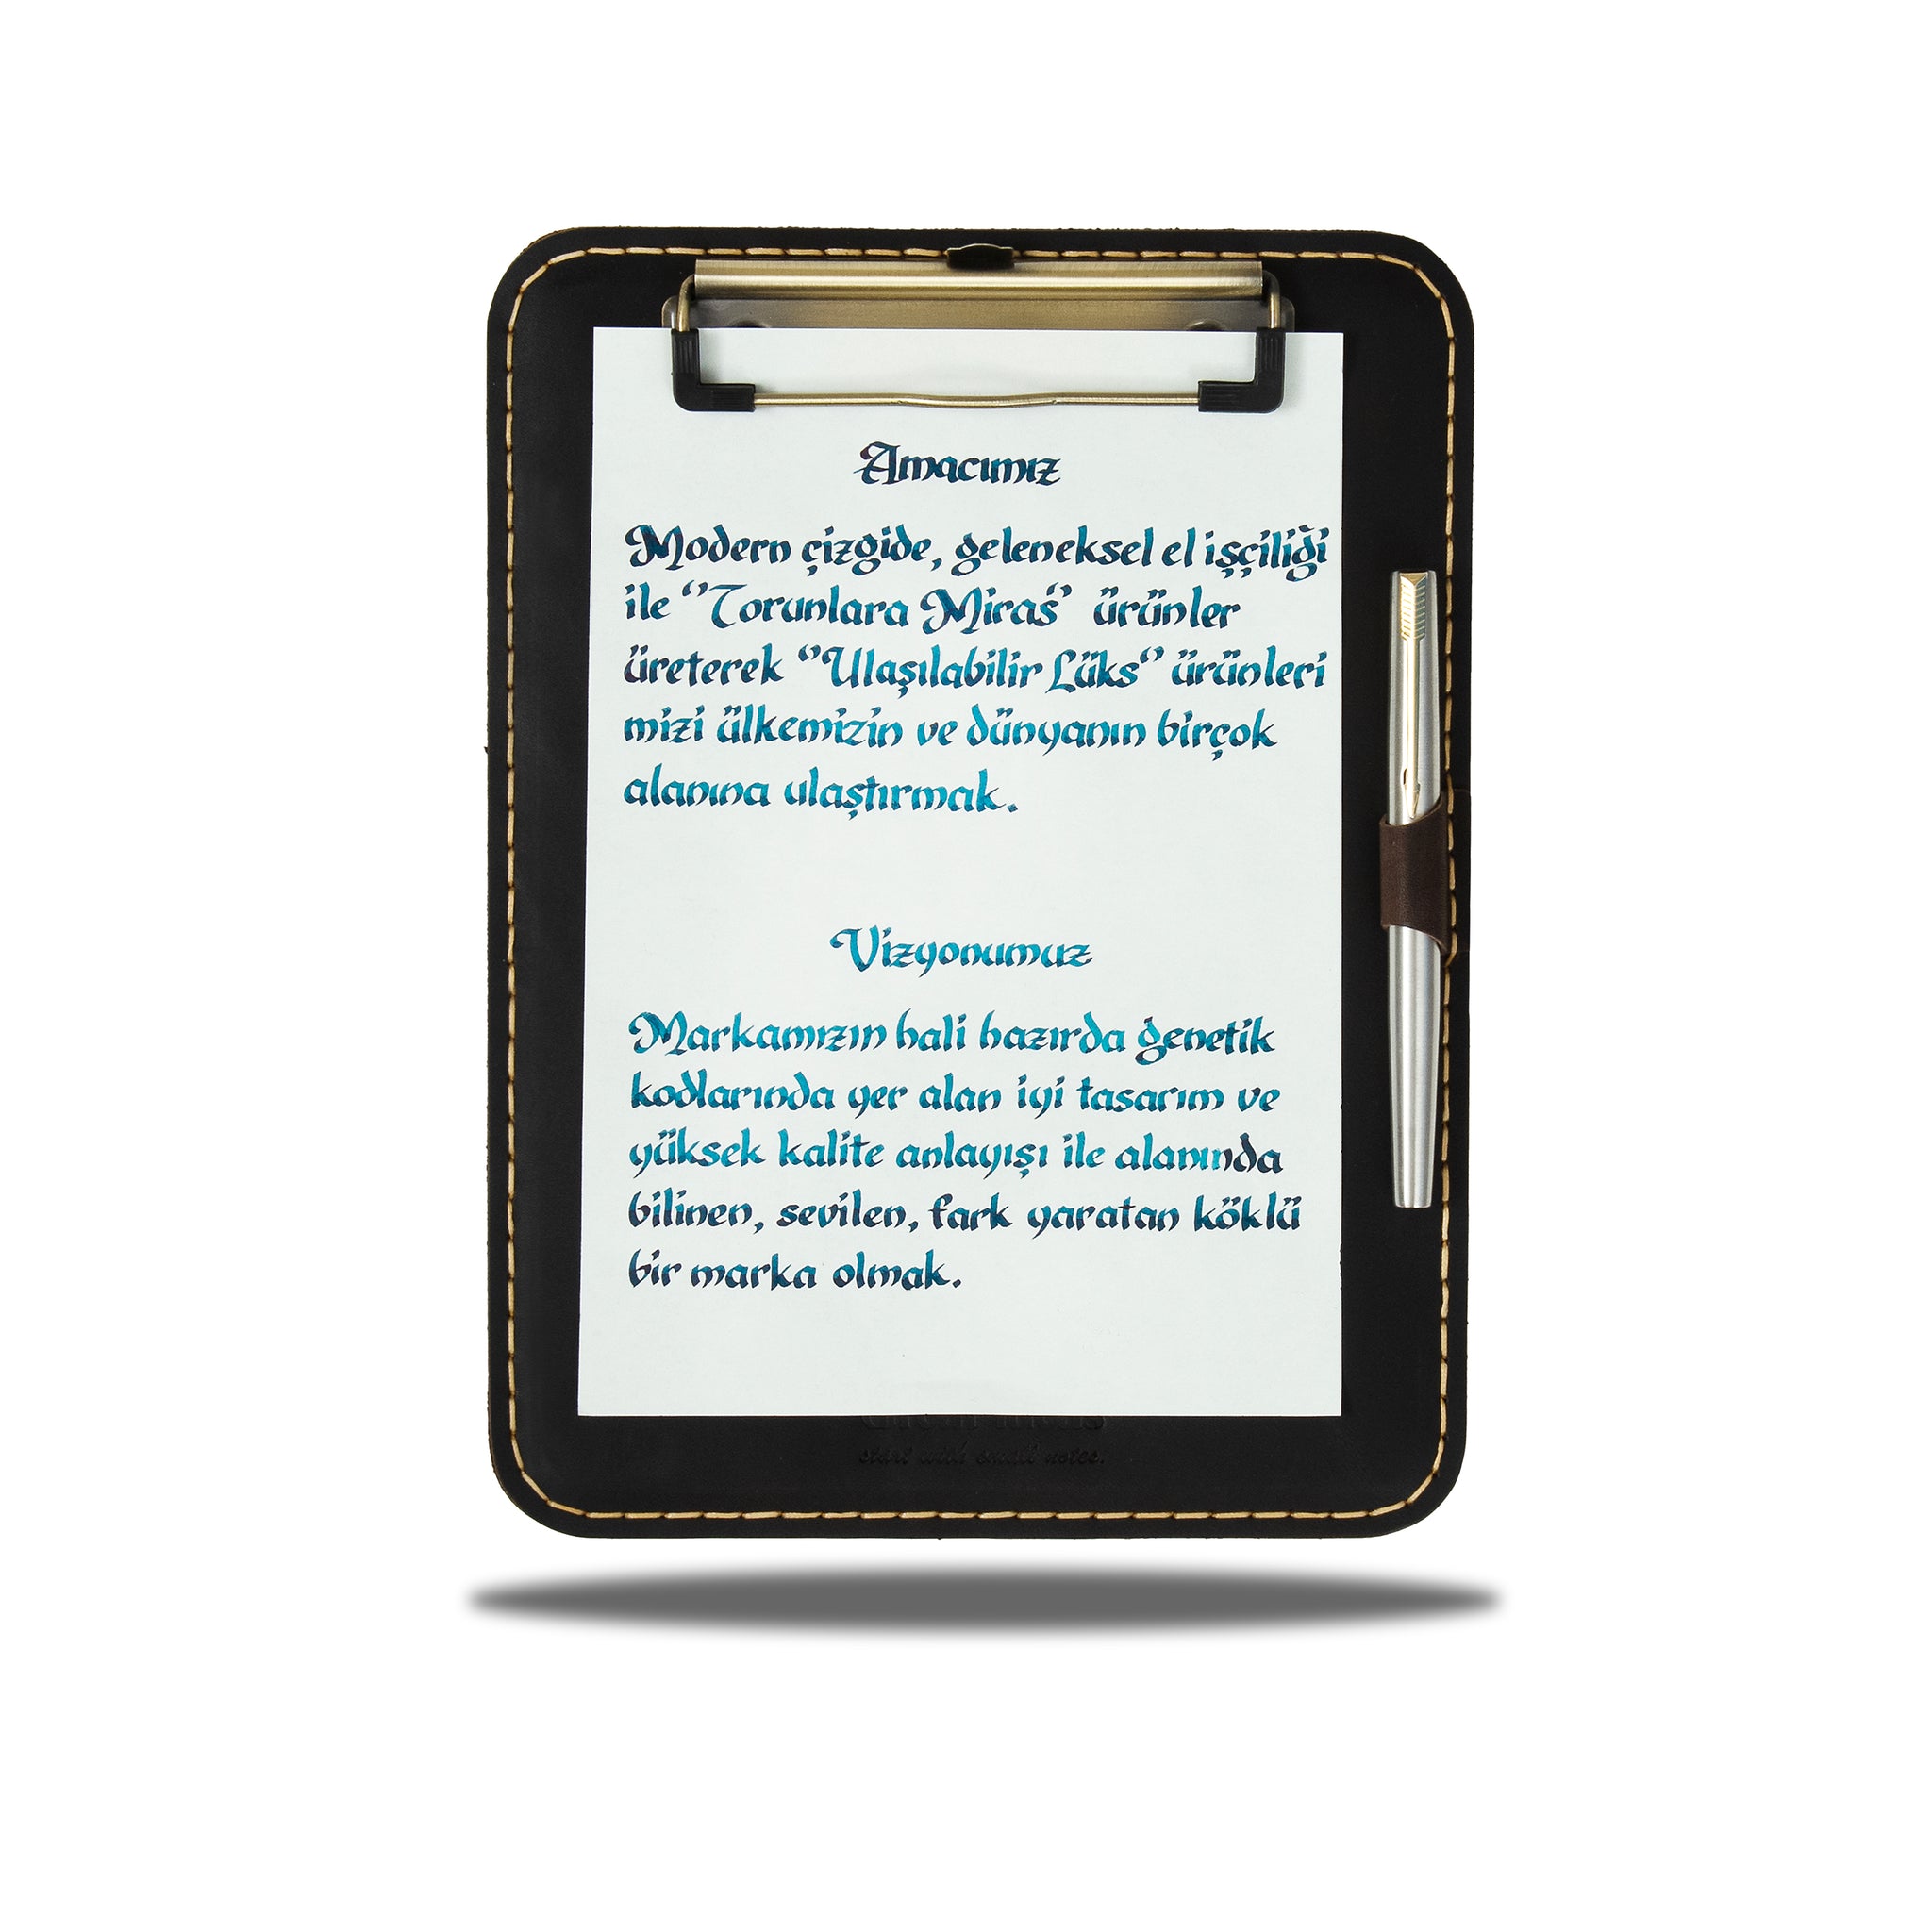 Amacımız
Modern çizgide, geleneksel el işçiliği
ile “Torunlara Miras” ürünler
üreterek “Ulaşılabilir Lüks” ürünleri
mizi ülkemizin ve dünyanın birçok
alanına ulaştırmak.
Vizyonumuz
Markamızın hali hazırda genetik
kodlarında yer alan iyi tasarım ve
yüksek kalite anlayışı ile alanında
bilinen, sevilen, fark yaratan köklü
bir marka olmak.
start with small notes.